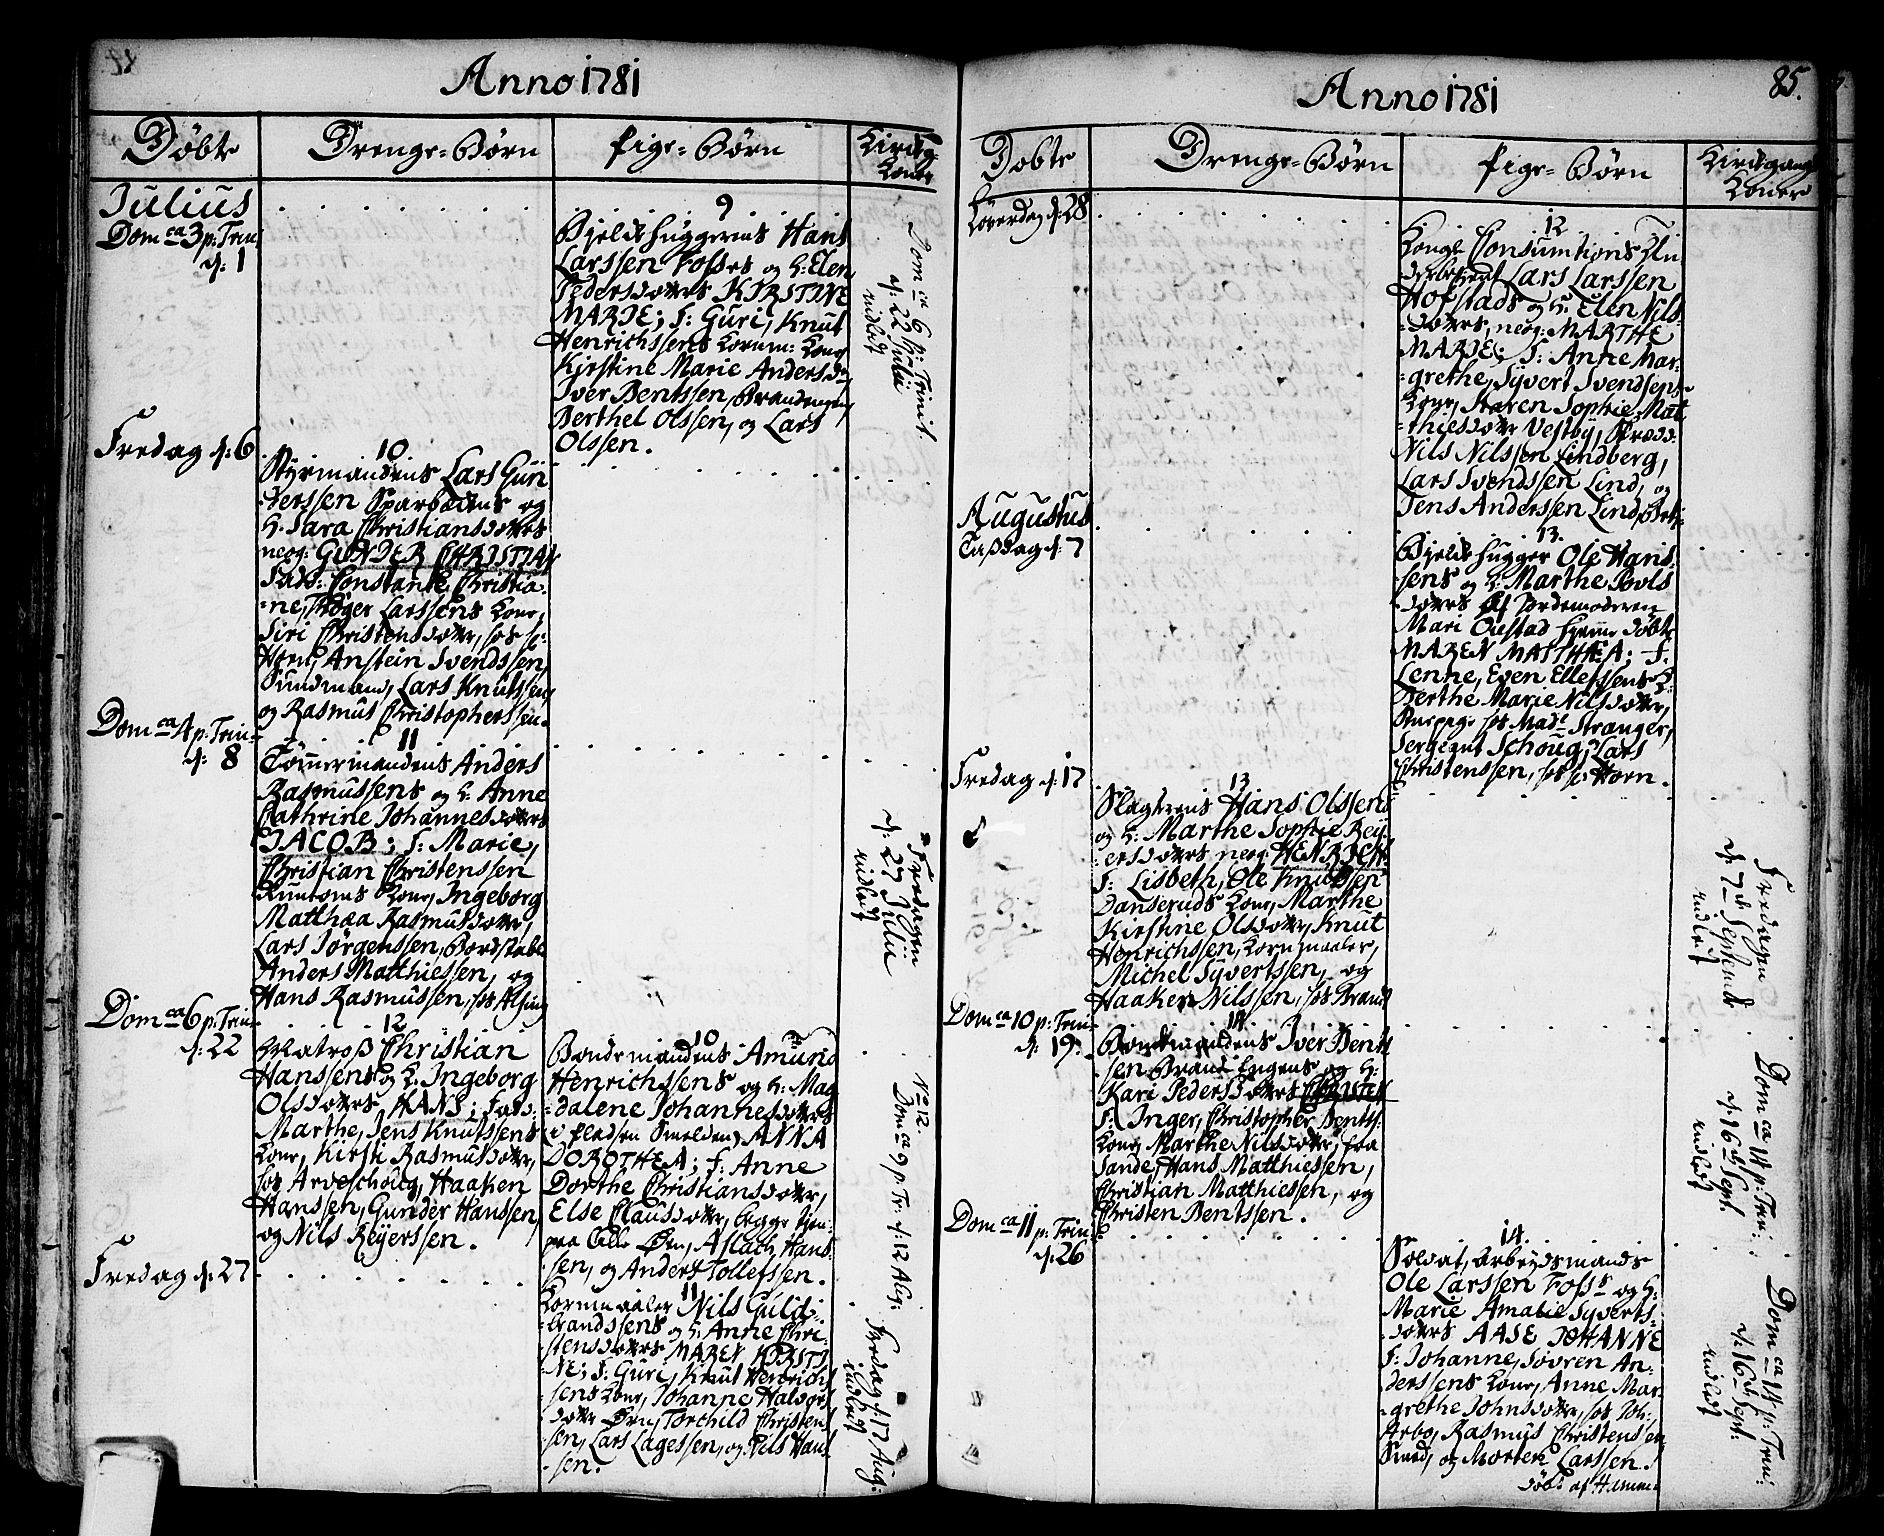 Anno 1781
Døbte
Drenge-Børn
Pige-Børn
Kirkeg.
Koner
Julius
Dom ca 3 p: Trin.
d: 1
9
Bjelkehuggerens Hans
Larssen Fosses og H: Elen
Pedersdotters KIRSTINE
MARIE; F: Guri, Knut
Henrichssens Kornm: Kone
Kirstine Marie Andersd
Iver Bentssen, Brandengen,
Berthel Olssen, og Lars
Olssen.
Dom ca 6 p: Trinit.
d: 22 Julii
indledt
Fredag d: 6
10
Styrmandens Lars Gun
derssen Sparbædens og
H. Sara Christiansdotters
neog: GUNDER CHRISTIAN
Fadd: Constantie Christia-
ne, Røger Larssens Kone,
Siri Christensdotter, hos hr:
Horn, Anstein Svendssen,
Sundmand, Lars Knutssen,
og Rasmus Christopherssen.
Dom ca 4 p: Trin-
d: 8
11
Tømmermandens Anders
Rasmussens og H: Anne
Cathrine Johannesdotters
JACOB; F: Marie,
Christian Christenssen
Kone, Ingeborg
Matthæa Rasmusdotter,
Lars Jørgenssen,
Anders Matthiessen, og
Hans Rasmussen, hos
Fredagen
d: 27 Julii
indledt
Dom ca 6 p: Trin-
d: 22
12
Matros Christian
Hanssens og H. Ingeborg
Olsdotters HANS; Fadd:
Marthe, Jens Knutssens
Kone, Kirsti Rasmusdotter,
hos Arveschoug, Haaken
Hanssen, Gunder Hanssen,
og Nils Reyerssen.
10
Bondemandens Amund
Henrichssens og H: Mag
dalene Johannesdotters
(i Pladsen Smelden) ANNA
DOROTHEA; F: Anne
Dorthe Christiansdotter,
Else Clausdotter, begge tien:
paa Lille Ørn, Aslach Hans-
sen, og Anders Tollefssen.
No 12.
Dom ca 9 p: Tr: d: 12 Aug:
Fredag d: 27
11
Kornmaaler Nils Guld-
brandssens og H: Anne Chri-
stensdotters MAREN KIRSTI-
NE; F: Guri, Knut Henrich-
sens Kone, Johanne Halvors
dotter Ørn, Torchild Christens
sen, Lars Lagessen, og Nils Hans
sen.
Fredag d: 17 Aug:
indledt
Anno 1781
85.
Døbte
Drenge-Børn
Pige-Børn
Kirkegangs
Koner
Løverdag d: 28
12
Kongl: Consumtions
Lars Larssen
Hofstads og H: Elen Nils-
dotters, neog: MARTHE
MARIE; F: Anne Mar-
grethe, Syvert Svendsens
Kone, Karen Sophie Mat
thiesdotter Vestby,
Nils Nilssen Lindberg,
Lars Svendssen Lind, og
Jens Anderssen Lind,
Augustus
Tiisdag d: 7
13.
Bjelkehugger Ole Hans-
sens og H: Marthe Povls
dotters af Jordemoderen
Mari Ouestad hjemmedøbte
MAREN MATTHEA; F.
Lenne, Even Ellefssens K:
Berthe Marie Nilsdotter,
hos Mad: Stranger,
Sergeant Schoug, Lars
Christenssen, hos hr Horn.
Fredag d: 17
13
Slagterens Hans Olssens
og H. Marthe Sophie Rey-
ersdotters neog: HENRICH
F: Lisbeth, Ole Knudssen
Danseruds Kone, Marthe
Kirstine Olsdotter, Knut
Henrichssen, Kornmaaler,
Michel Syvertssen, og
Haaken Nilssen, hos Brand
Fredagen
d: 7de Septembr
indledt
Dom ca 10 p: Trin-
d: 19.
14
Bondemandens Iver Bents
sen Brand Engens og H:
Kari Pedersdotters CHRISTEN
F: Inger, Christopher Bentss:
Kone, Marthe Nilsdotter, fra
Sande, Hans Matthiessen,
Christian Matthiessen, og
Christen Bentssen.
Dom ca 14 p: Tri:
d: 16de Sept.
indledt
Dom ca 11 p: Trin:
d: 26
14.
Soldat, Arbeydsmands
Ole Larssen Foss's og H:
Marie Amalie Syverts-
dotters AASE JOHANNE
F: Johanne, Sövren An-
derssens Kone, Anne Mar-
grethe Johnsdotter, hos Joh:
Arbo, Rasmus Christenssen
Smed, og Morten Larssen.
døbt af Hamm:
Dom ca 14 p: Trin:
d: 16de Sept:
indledt